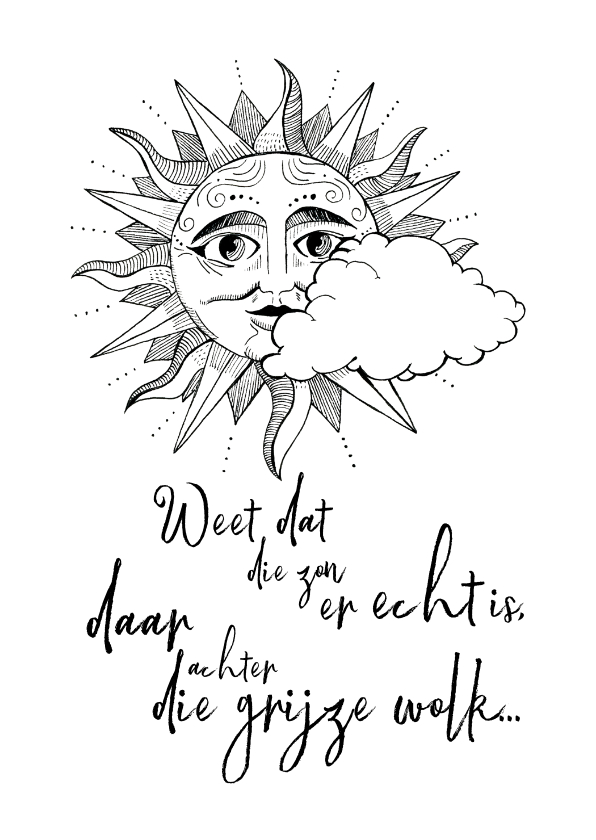 Weet dat
die zon
er echt is,
daar
achter
die grijze wolk...